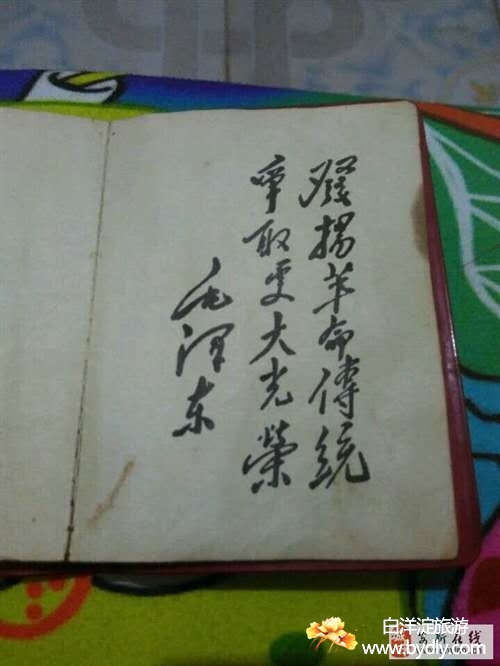 發揚革命傳統
爭取更大光榮
毛澤东
白洋淀旅游
www.bydly.com
在线